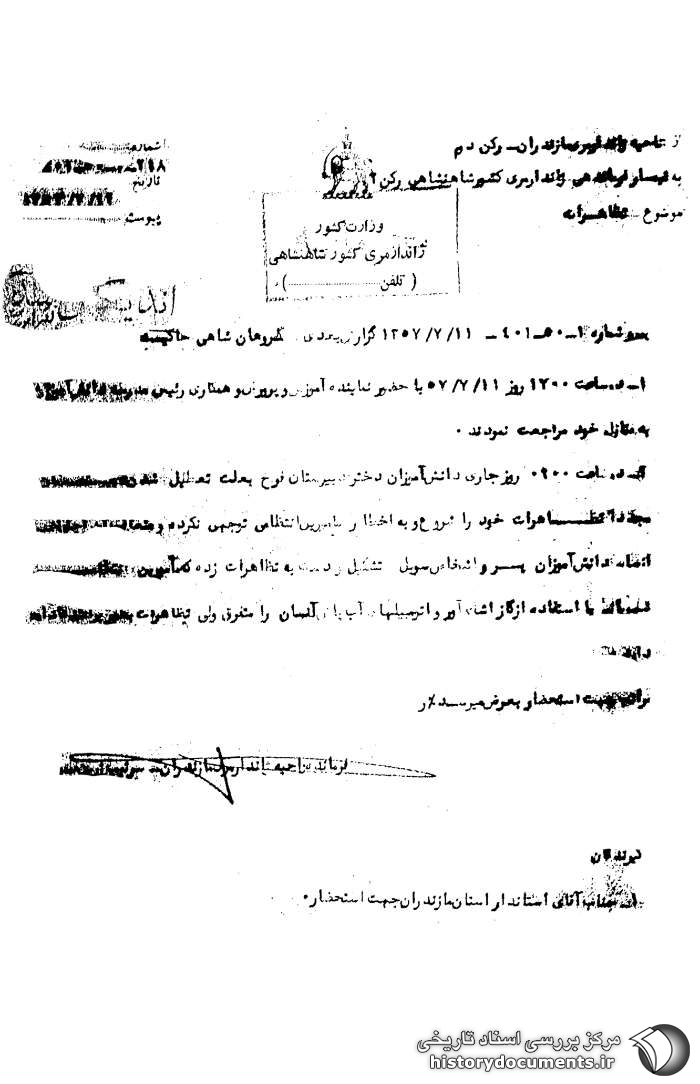 از ناحیه ژاندارمری مازندران - رکن دوم
به تیمسار فرماندهی ژاندارمری کشور شاهنشاهی رکن ۲
موضوع تظاهرات
شماره
تاریخ
پیوست
وزارت کشور
ژاندارمری کشور شاهنشاهی
( تلفن )
پیرو شماره ۱۱ /۷/ ۱۳۵۷ گروهان شاهی حاکیست
۱- در ساعت ۱۲۰۰ روز ۱۱ /۷/ ۵۷ با حضور نماینده آموزش و پرورش و همکاری رئیس مدرسه دانش آموزان
به منازل خود مراجعت نمودند ۰
ساعت ۰۹۰۰ روز جاری دانش آموزان دختر دبیرستان فوق بعلت تعطیل شدن
مجددا تظاهرات خود را شروع و به اخطار مامورین انتظامی توجهی نکرده و متعاقب
دانش آموزان پسر و اشخاص سویل تشکیل و دست به تظاهرات زده که مامورین
با استفاده از گاز اشک آور و اتومبیلهای آب پاش آنان را متفرق ولی تظاهرات
دارد
مراتب جهت استحضار بعرض میرسد
فرمانده ناحیه ژاندارمری مازندران - سرتیپ
گیرندگان
جناب آقای استاندار استان مازندران جهت استحضار ۰
مرکز بررسی اسناد تاریخی
historydocuments.ir